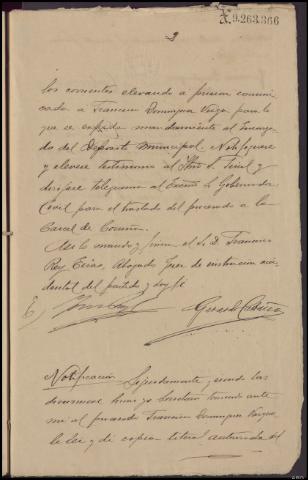 A.9.263.366
3
los corrientes elevando a prision comuni
cada a Francisco Dominguez Veiga para lo
que se expida mandamiento al Encarga
do del Depósito Municipal. Notifiquese
y elevese testimonio al Ilmo S. Fiscal y
dirijase telegrama al Excmo S. Gobernador
Civil para el traslado del procesado a la
Carcel de Coruña.
Asi lo mando y firma el S. D. Francisco
Rey Abogado Juez de instruccion acci
dental del partido y doy fe
Notificacion Seguidamente, siendo las
horas yo Secretario teniendo ante
mi al procesado Francisco Dominguez Veiga
le lei y di copia literal autorizada del